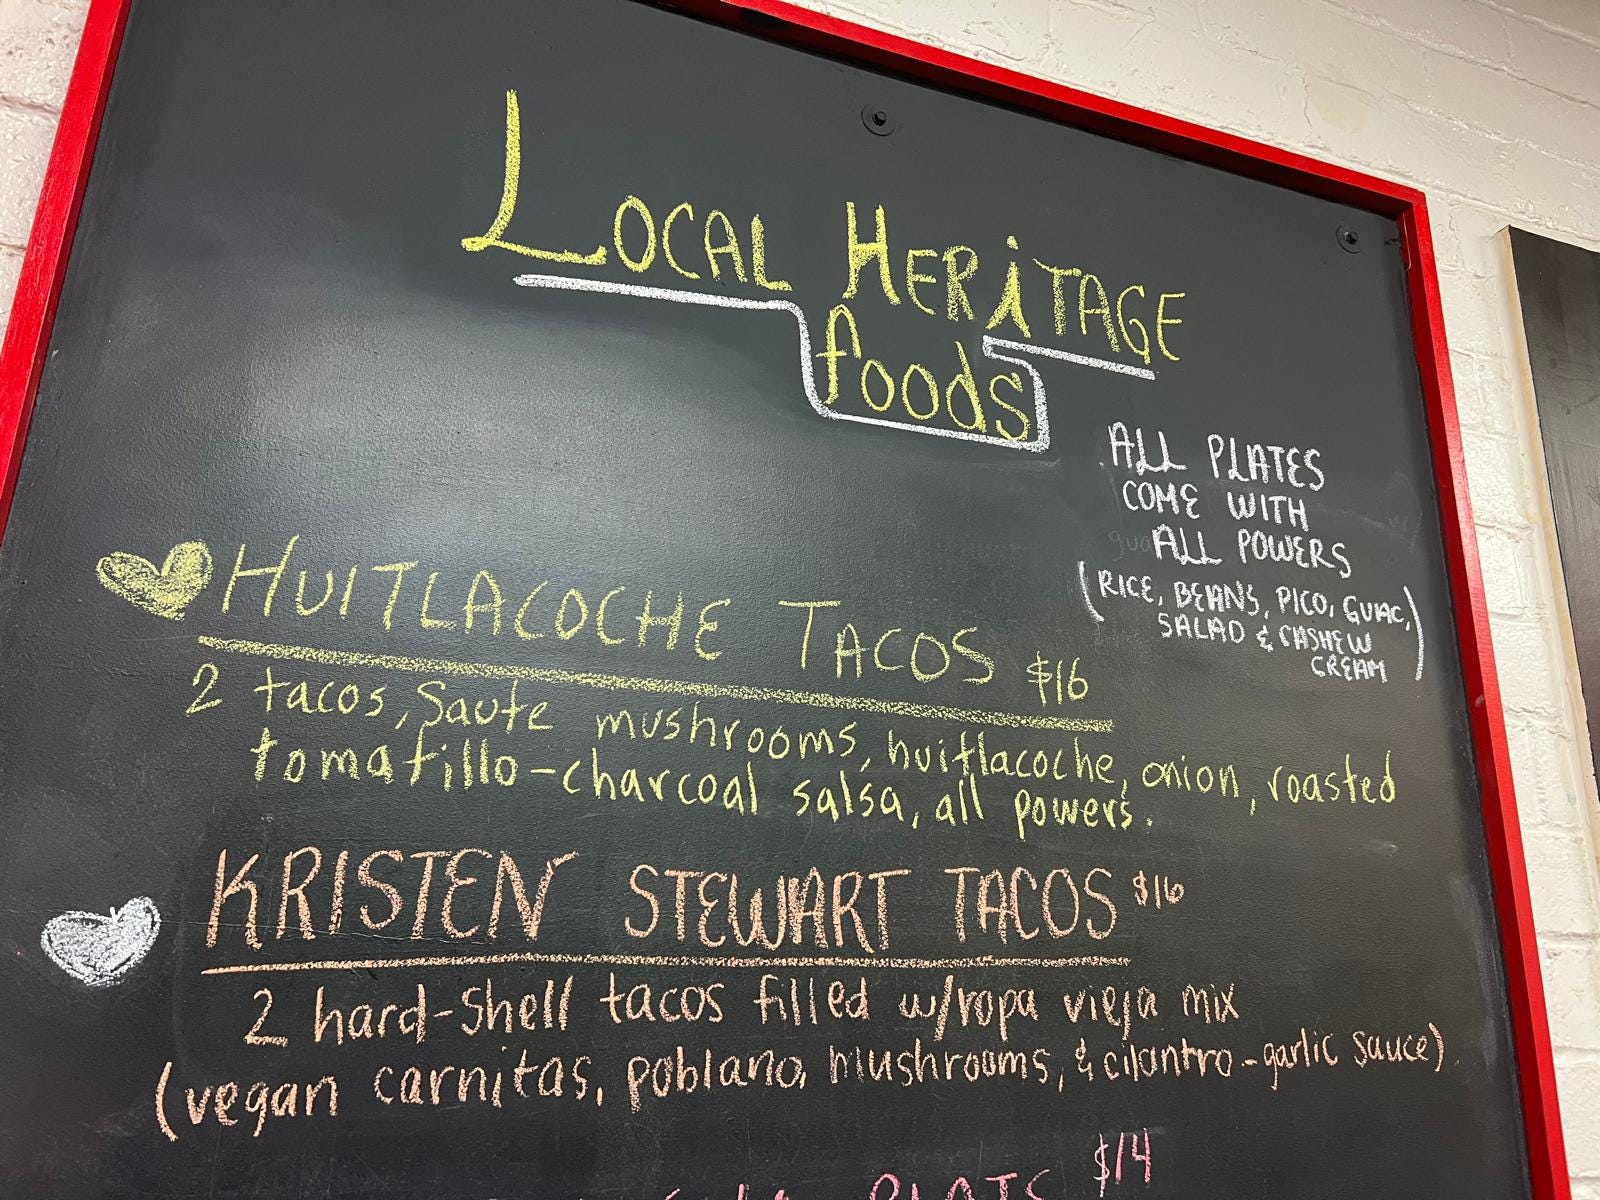 LOCAL HERiTAGE
foods
ALL PLATES
COME WITH
ALL POWERS
(RICE, BEANS, PICO, GUAC,
SALAD & CASHEW
CREAM)
HUITLACOCHE TACOS $16
2 tacos, Saute mushrooms, huitlacoche, onion, roasted
tomatillo-charcoal salsa, all powers.
KRISTEN STEWART TACOS $16
2 hard-shell tacos filled w/ropa vieja mix
(vegan carnitas, poblano, mushrooms, & cilantro-garlic sauce)
$14